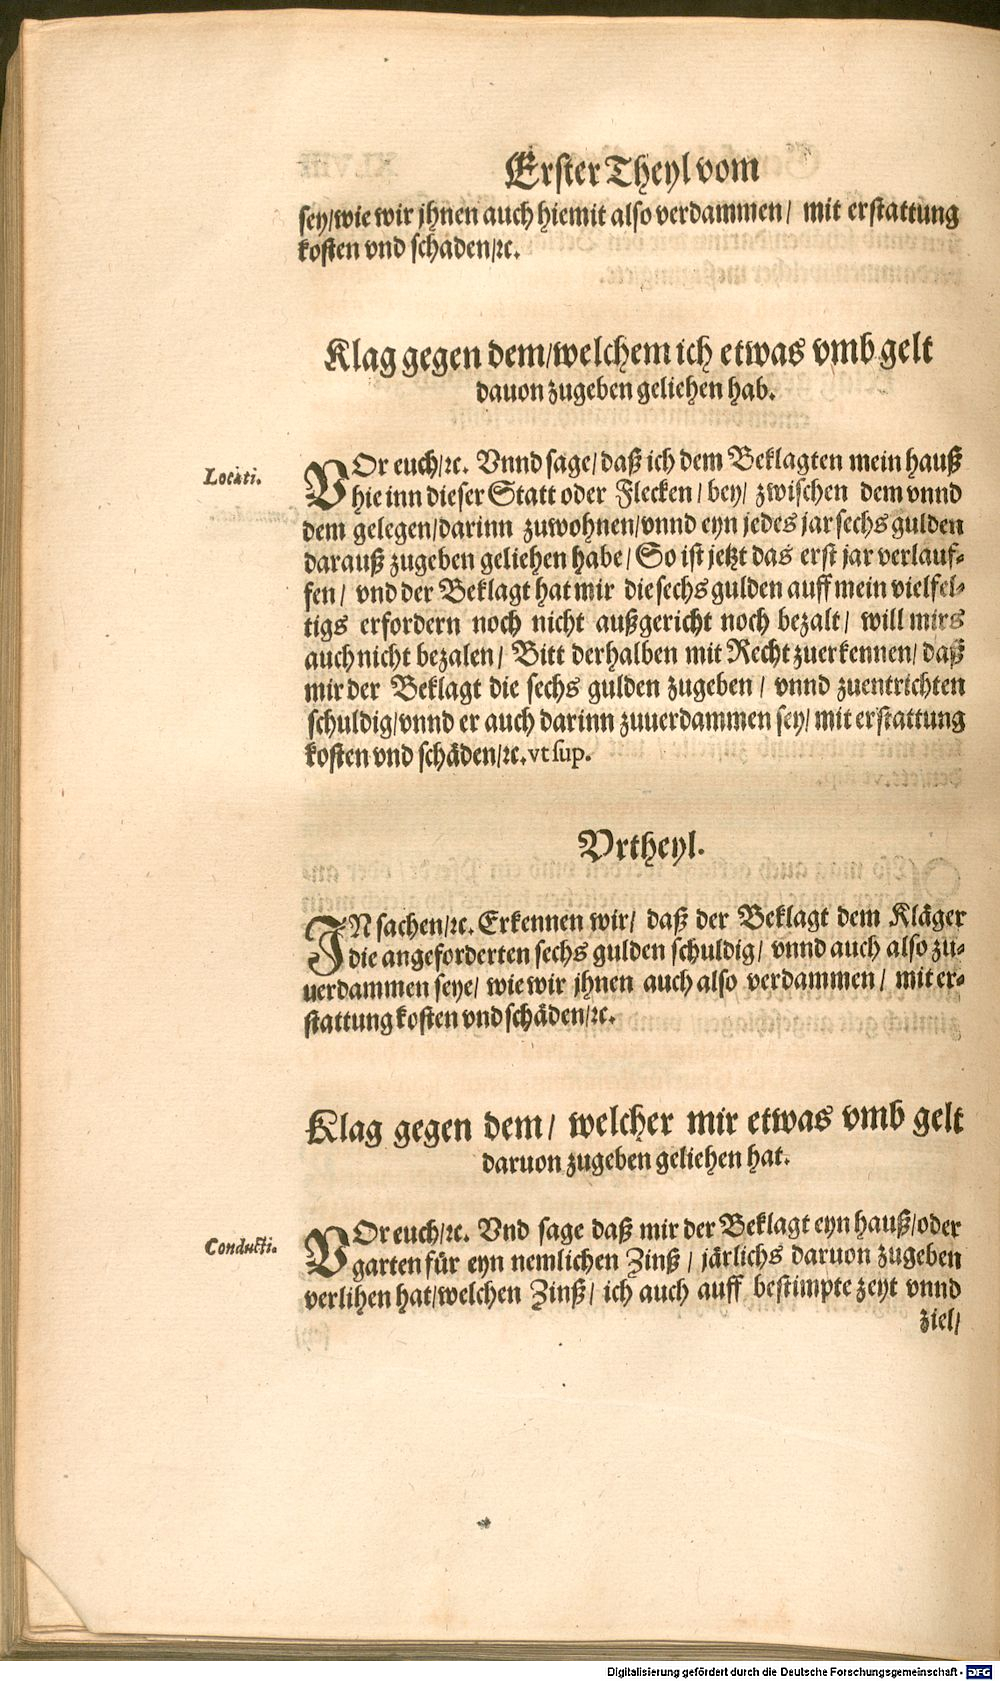 Erster Theyl vom
sey/wie wir jhnen auch hiemit also verdammen/ mit erstattung
kosten vnd schaden/ꝛc.
Klag gegen dem/welchem ich etwas vmb gelt
dauon zugeben geliehen hab.
Locati.
VOr euch/ꝛc. Vnnd sage/daß ich dem Beklagten mein hauß
hie inn dieser Statt oder Flecken/bey/ zwischen dem vnnd
dem gelegen/darinn zuwohnen/vnnd eyn jedes jar sechs gulden
darauß zugeben geliehen habe/ So ist jetzt das erst jar verlauf-
fen/ vnd der Beklagt hat mir die sechs gulden auff mein vielfel-
tigs erfordern noch nicht außgericht noch bezalt/ will mirs
auch nicht bezalen/ Bitt derhalben mit Recht zuerkennen/ daß
mir der Beklagt die sechs gulden zugeben/ vnnd zuentrichten
schuldig/vnnd er auch darinn zuuerdammen sey/ mit erstattung
kosten vnd schäden/ꝛc. vt sup.
Vrtheyl.
IN sachen/ꝛc. Erkennen wir/ daß der Beklagt dem Kläger
die angeforderten sechs gulden schuldig/ vnnd auch also zu-
uerdammen seye/ wie wir jhnen auch also verdammen/ mit er-
stattung kosten vnd schäden/ꝛc.
Klag gegen dem/ welcher mir etwas vmb gelt
daruon zugeben geliehen hat.
Conducti.
VOr euch/ꝛc. Vnd sage daß mir der Beklagt eyn hauß/oder
garten für eyn nemlichen Zinß/ järlichs daruon zugeben
verlihen hat/welchen Zinß/ ich auch auff bestimpte zeyt vnnd
ziel/
Digitalisierung gefördert durch die Deutsche Forschungsgemeinschaft - DFG